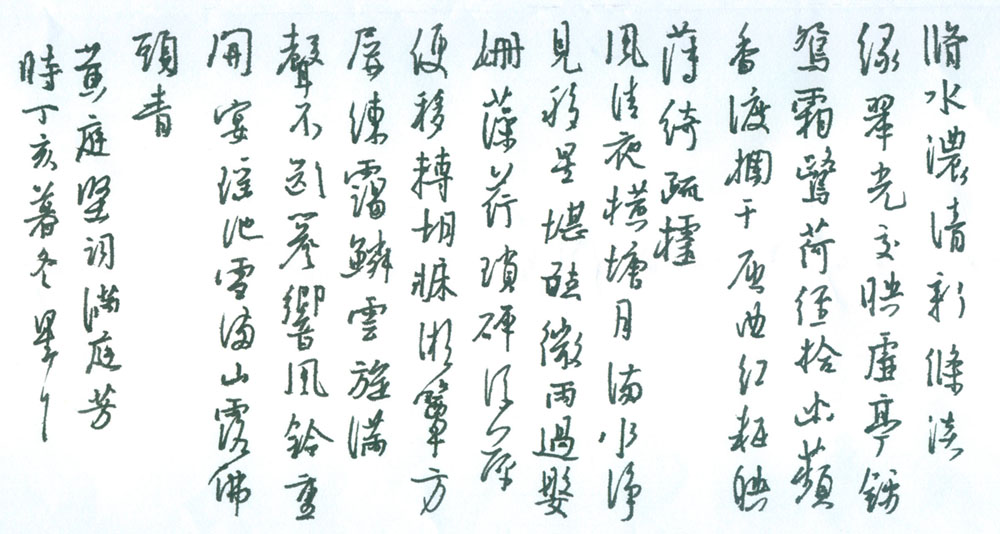 脩水濃清新條淡
緑翠光交映虛亭錦
鴛霜鷺荷徑拾幽蘋
香渡攔干屈曲紅粧映
薄綺疏欞
風清夜橫塘月滿水淨
見移星堪聽微雨過媻
姍藻荇瑣碎浮萍
便移轉胡牀湘簟方
屏練靄鱗雲旋滿
聲不斷簷響風鈴重
開宴瑶池雪滿山露佛
頭青
黄庭坚词滿庭芳
時丁亥暮冬